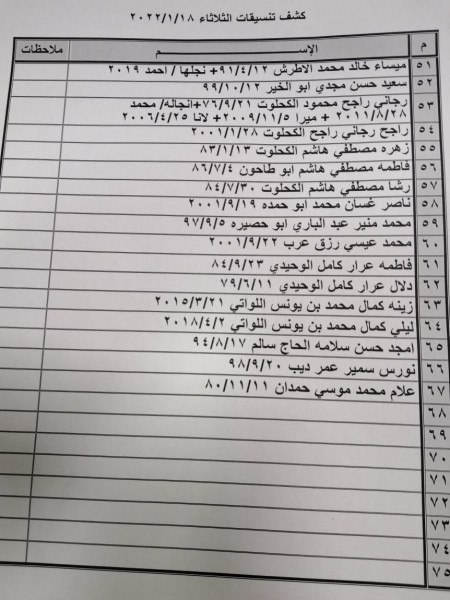 كشف تنسيقات الثلاثاء ٢٠٢٢/١/١٨
م الإســـم ملاحظات
٥١ ميساء خالد محمد الاطرش ٩١/٤/١٢+ نجلها / احمد ٢٠١٩
٥٢ سعيد حسن مجدي ابو الخير ٩٩/١٠/١٢
٥٣ رجاني راجح محمود الكحلوت ٧٦/٩/٢١+انجاله/ محمد
٢٠١١/٨/٢٨ + ميرا ٢٠٠٩/١١/٥+ لانا ٢٠٠٦/٤/٢٥
٥٤ راجح رجاني راجح الكحلوت ٢٠٠١/١/٢٨
٥٥ زهره مصطفي هاشم الكحلوت ٨٣/١/١٣
٥٦ فاطمه مصطفي هاشم ابو طاحون ٨٦/٧/٤
٥٧ رشا مصطفي هاشم الكحلوت ٨٤/٧/٣٠
٥٨ ناصر غسان محمد ابو حمده ٢٠٠١/٩/١٩
٥٩ محمد منير عبد الباري ابو حصيره ٩٧/٩/٥
٦٠ محمد عيسي رزق عرب ٢٠٠١/٩/٢٢
٦١ فاطمه عرار كامل الوحيدي ٨٤/٩/٢٣
٦٢ دلال عرار كامل الوحيدي ٧٩/٦/١١
٦٣ زينه كمال محمد بن يونس اللواتي ٢٠١٥/٣/٢١
٦٤ ليلي كمال محمد بن يونس اللواتي ٢٠١٨/٤/٢
٦٥ امجد حسن سلامه الحاج سالم ٩٤/٨/١٧
٦٦ نورس سمير عمر ديب ٩٨/٩/٢٠
٦٧ علام محمد موسي حمدان ٨٠/١١/١١
٦٨
٦٩
٧٠
٧١
٧٢
٧٣
٧٤
٧٥